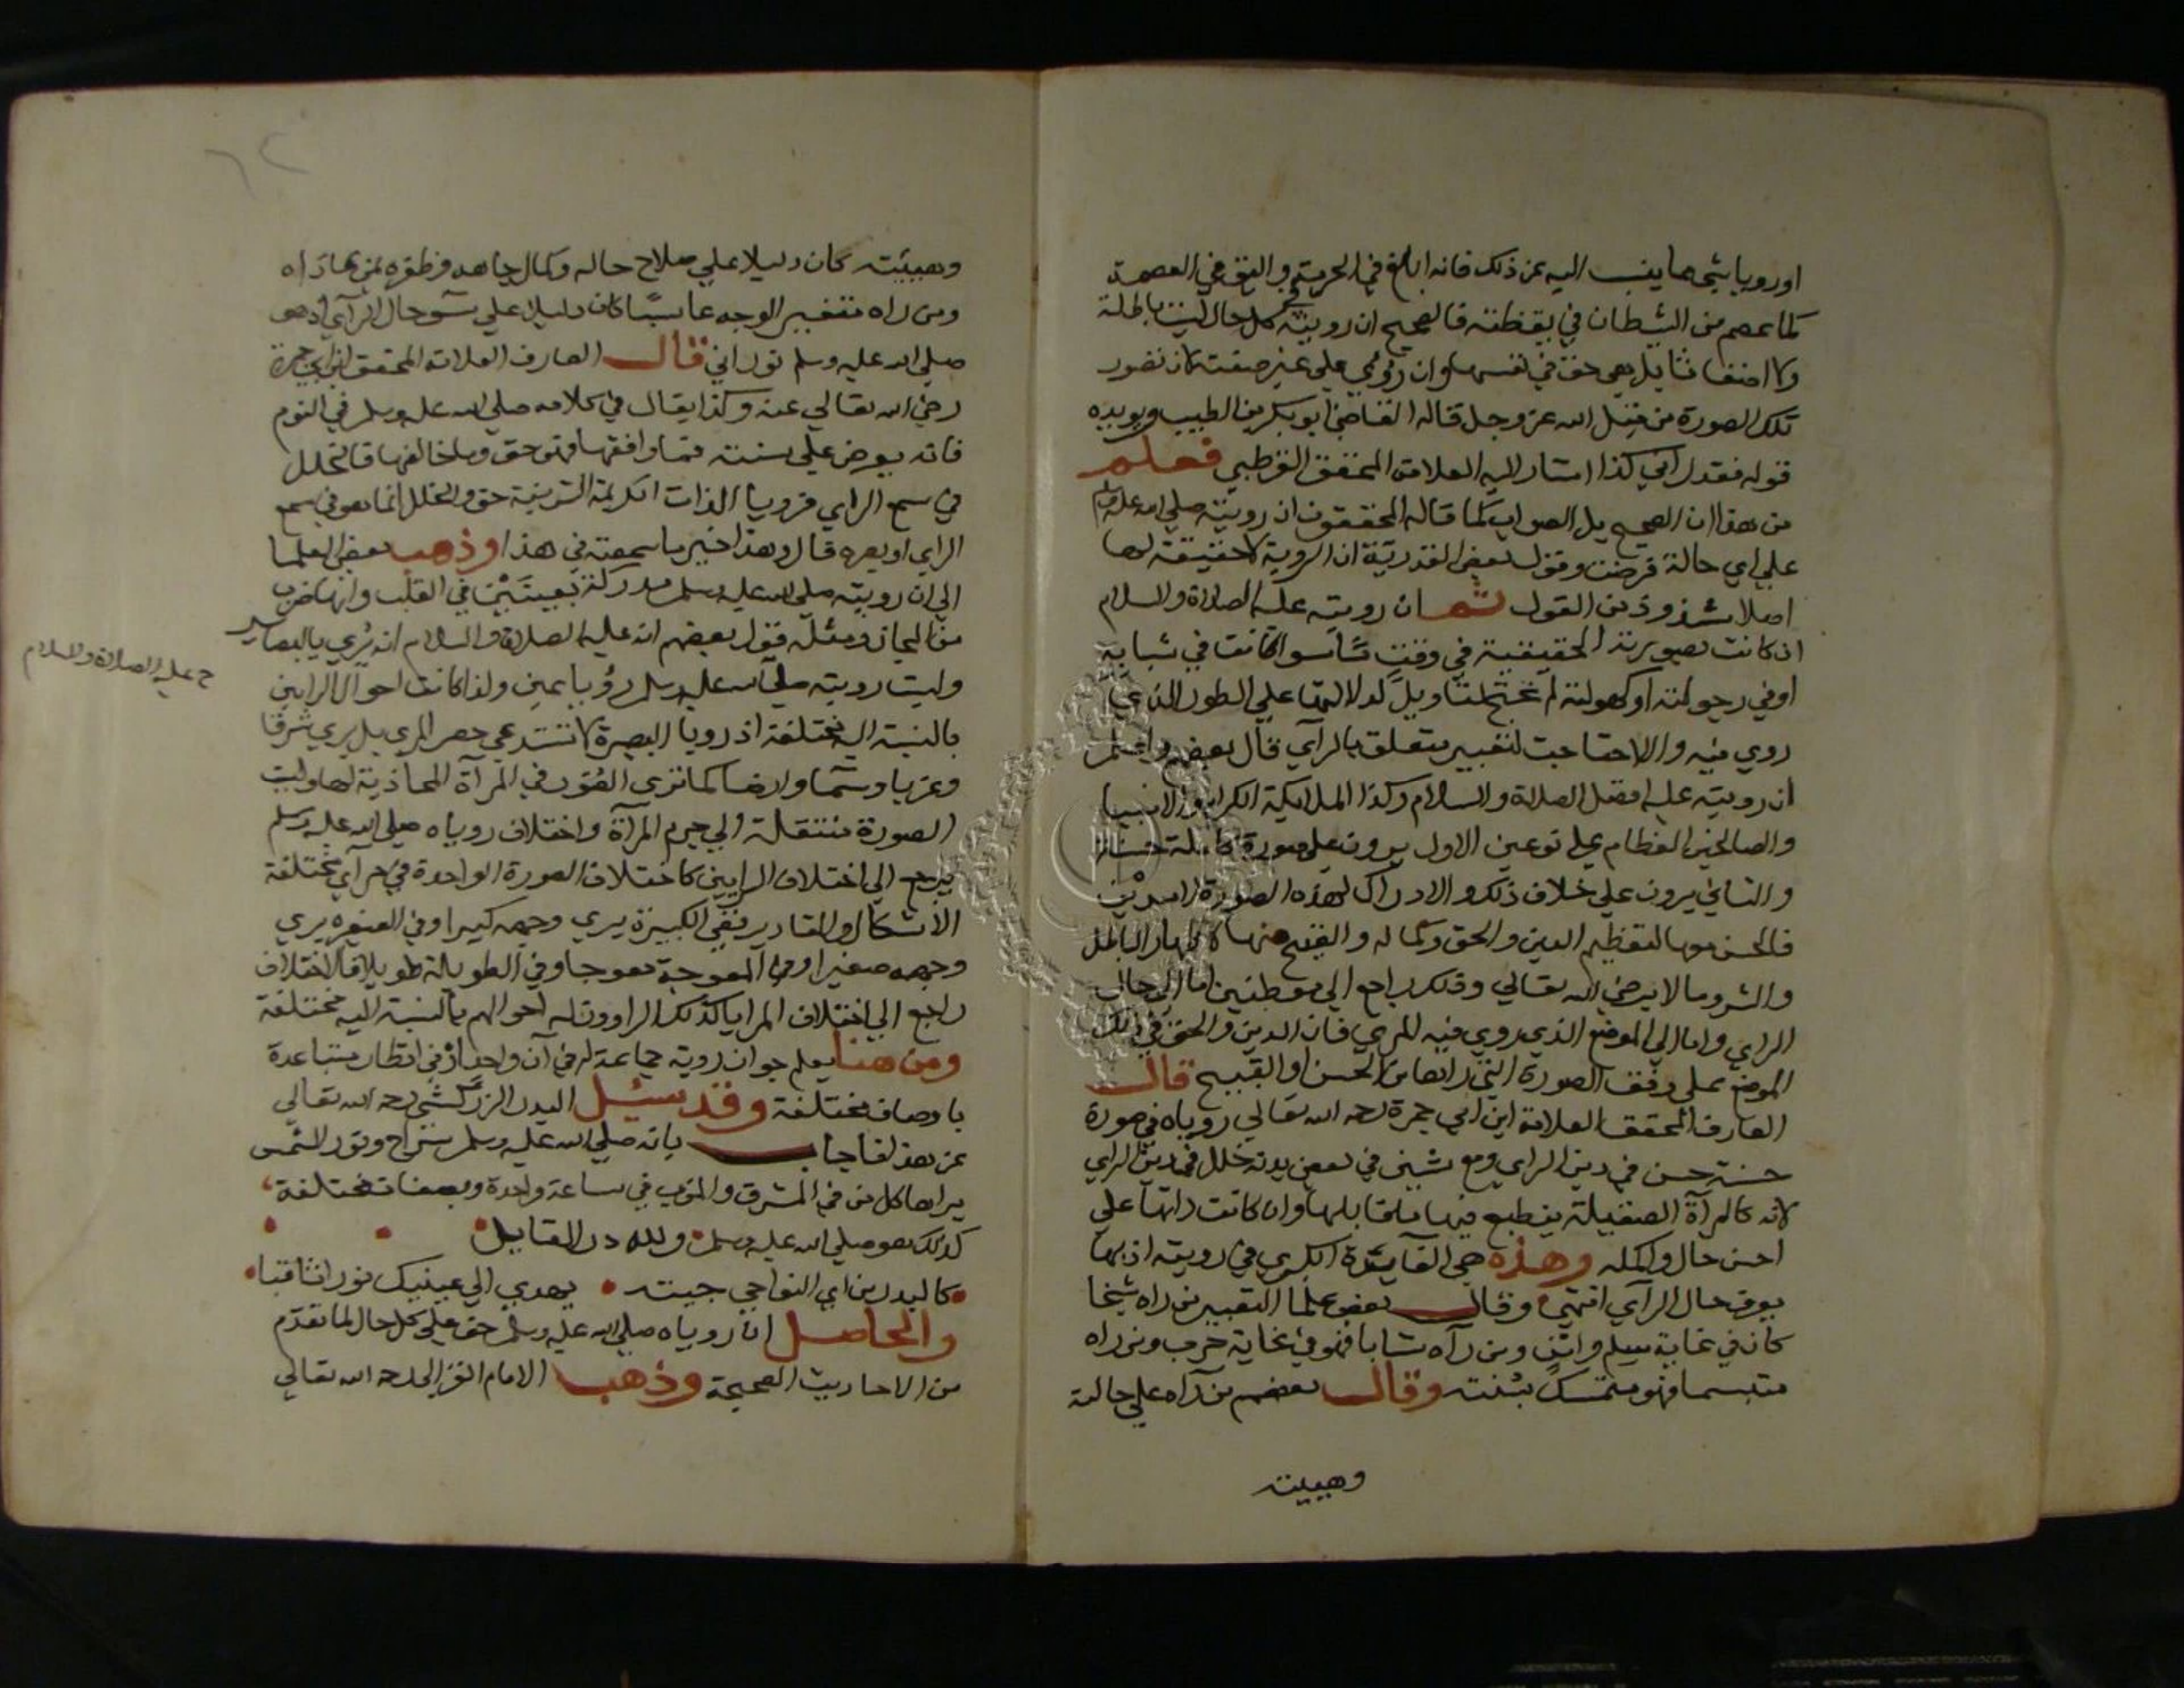 او رويا شي مما ينسب اليه عن ذلك فانه ابلغ في الحرمة واليق في العصمة
كما عصم من الشيطان في يقظته فالصحيح ان رويته في كل حال ليست باطلة
ولا اضغاثا بل هي حق في نفسها وان روي علي غير صفته كان تصور
تلك الصورة من قبل الله عز وجل قاله القاضي ابو بكر بن الطيب ويويده
قوله فقد راني كذا اشار اليه العلامة المحقق القرطبي فعلم
من هذا ان الصحيح بل الصواب كما قاله المحققون ان رويته صلي الله عليه وسلم
علي اي حالة فرضت وقول بعض القدرية ان الروية لا حقيقة لها
اصلا شذوذ من القول ثم ان رويته عليه الصلاة والسلام
ان كانت بصورته الحقيقية في وقت ما سوا كانت في شبابه
او في رجوليته او كهولته لم تحتج لتاويل لدلالتها علي الطور الذي
روي فيه والا احتاجت لتعبير متعلق بالرآي قال بعضهم واعلم
ان رويته عليه افضل الصلاة والسلام وكذا الملايكة الكرام والانبيا
والصالحين العظام علي نوعين الاول يرون علي صورة كاملة حسنة
والثاني يرون علي خلاف ذلك والادراك لهذه الصورة امر ديني
فالحسن منها لتعظيم الدين والحق وكماله والقبيح منها لاظهار الباطل
والشر وما لا يرضي الله تعالي وذلك راجع الي موطنين اما الي حال
الراي واما الي الموضع الذي روي فيه المري فان الدين والحق في ذلك
الموضع علي وفق الصورة التي راها من الحسن او القبيح قال
العارف المحقق العلامة ابن ابي جمرة رحمه الله تعالي روياه في صورة
حسنة حسن في دين الراي ومع شين في بعض بدنه خلل في دين الراي
لانه كالمرآة الصقيلة ينطبع فيها ما يقابلها وان كانت ذاتها علي
احسن حال واكمله وهذه هي الفايدة الكبري في رويته اذ بها
يعرف حال الرآي انتهي وقال بعض علما التعبير من راه شيخا
كان في غاية سلم وامن ومن رآه شابا فهو في غاية حرب ومن راه
متبسما فهو متمسك بسنته وقال بعضهم من رآه علي حالته
وهييته
وهييته كان دليلا علي صلاح حاله وكمال جاهه وظفره بمن عاداه
ومن راه متغير الوجه عابسا كان دليلا علي سوء حال الرآي اذ هو
صلي الله عليه وسلم نوراني قال العارف العلامة المحقق ابن ابي جمرة
رضي الله تعالي عنه وكذا يقال في كلامه صلي الله عليه وسلم في النوم
فانه يعرض علي سنته فما وافقها فهو حق وما خالفها فالخلل
في سمع الراي فرويا الذات الكريمة الشريفة حق والخلل انما هو في سمع
الراي او بصره قال وهذا خير ما سمعته في هذا وذهب بعض العلما
الي ان رويته صلي الله عليه وسلم مدركة بعينين في القلب وانها ضرب
من المجاز ومثله قول بعضهم انه عليه الصلاة والسلام انه يري بالبصاير
وليست رويته صلي الله عليه وسلم رؤيا عين ولذا كانت احوال الرايين
ح عليه الصلاة والسلام
بالنسبة اليه مختلفة اذ رويا البصيرة لا تستدعي حصر المري بل يري شرقا
وغربا وسما وارضا كما تري الصور في المرآة المحاذية لها وليست
الصورة منتقلة الي جرم المرآة واختلاف روياه صلي الله عليه وسلم
يرجع الي اختلاف الرايين كاختلاف الصورة الواحدة في مرآي مختلفة
الاشكال والمقادير ففي الكبيرة يري وجهه كبيرا وفي الصغيره يري
وجهه صغيرا وفي المعوجة معوجا وفي الطويلة طويلا فالاختلاف
راجع الي اختلاف المرايا كذلك الراوون له احوالهم بالنسبة اليه مختلفة
ومن هنا يعلم جواز روية جماعة له في آن واحد في اقطار متباعدة
باوصاف مختلفة وقد سئل البدر الزركشي رحمه الله تعالي
عن هذا فاجاب بانه صلي الله عليه وسلم سراج ونور لشمس
يراها كل من في المشرق والمغرب في ساعة واحدة وبصفات مختلفة
كذلك هو صلي الله عليه وسلم ولله در القايل
كالبدر من اي النواحي جيته • يهدي الي عينيك نورا ثاقبا
والحاصل ان روياه صلي الله عليه وسلم حق علي كل حال لما تقدم
من الاحاديث الصحيحة وذهب الامام الغزالي رحمه الله تعالي